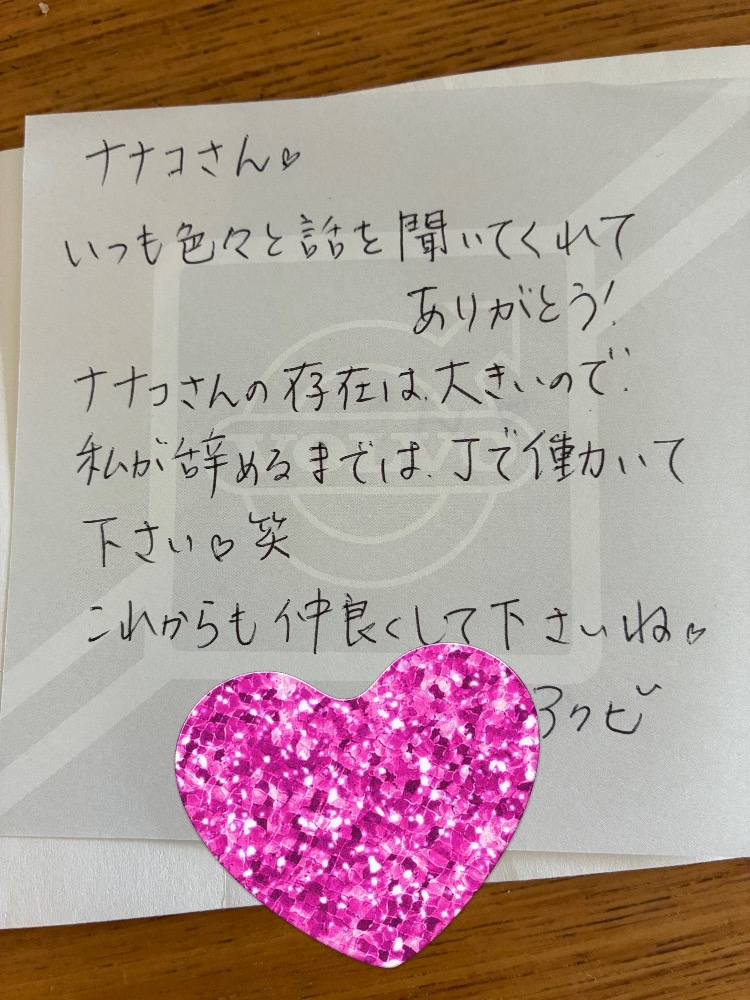 ナナコさん♡
いつも色々と話を聞いてくれて
ありがとう!
ナナコさんの存在は、大きいので、
私が辞めるまでは、Jで働いて
下さい♡笑
これからも仲良くして下さいね♡
VOLVO